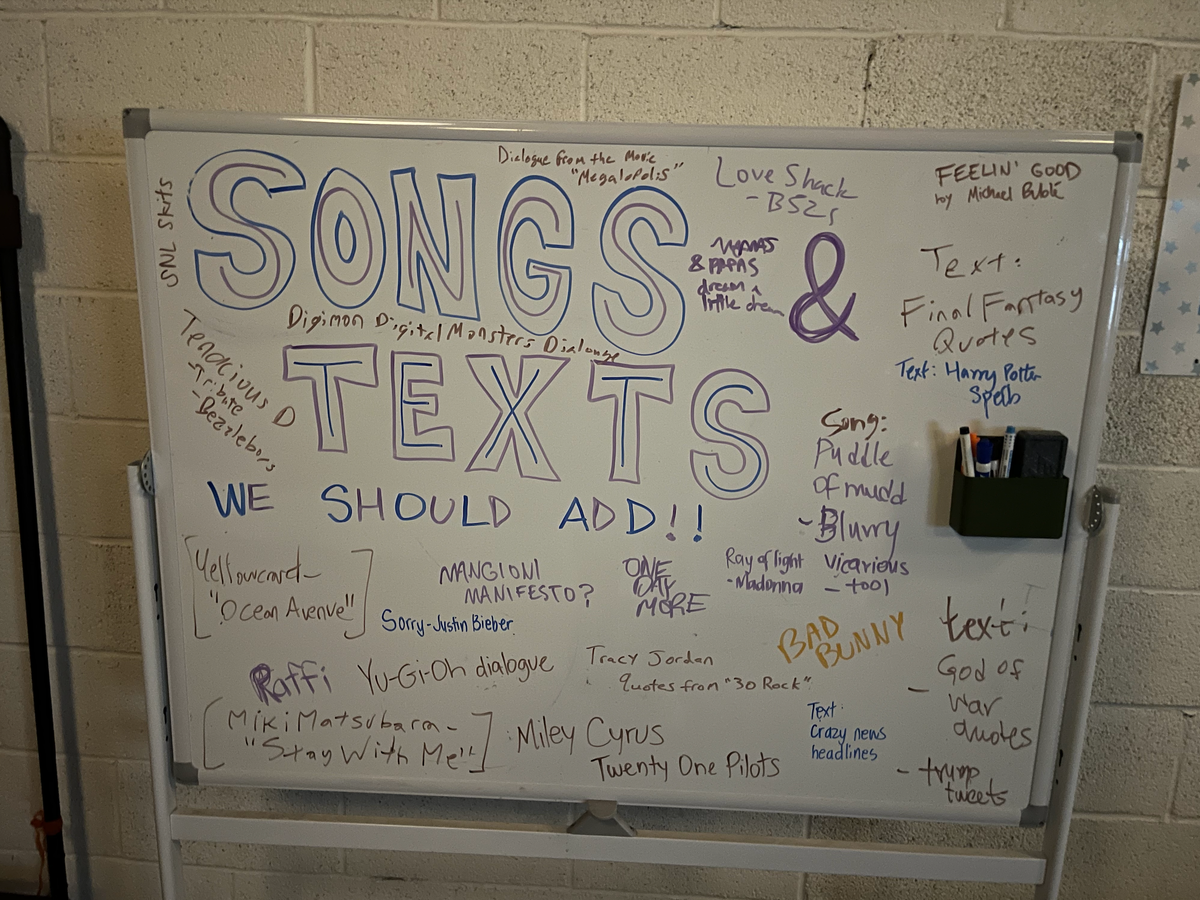 SONGS &
TEXTS
WE SHOULD ADD!!
SNL Skits
Dialogue from the Movie
"Megalopolis"
Love Shack
- B52s
FEELIN' GOOD
by Michael Bublé
MAMAS
& PAPAS
dream a
little dream
Text:
Final Fantasy
Quotes
Text: Harry Potter
Spells
Digimon Digital Monsters Dialouge
Tenacious D
-Tribute
-Beezlebors
Song:
Puddle
of mudd
- Blurry
Vicarious
- tool
Yellowcard-
"Ocean Avenue"
MANGIONI
MANIFESTO?
Sorry-Justin Bieber
ONE
DAY
MORE
Ray of light
-Madonna
BAD
BUNNY
text:
God of
- War
quotes
- trump
tweets
Raffi
Yu-Gi-Oh dialogue
Tracy Jordan
Quotes from "30 Rock"
Miki Matsubara-
"Stay With Me"
Miley Cyrus
Twenty One Pilots
Text:
Crazy news
headlines